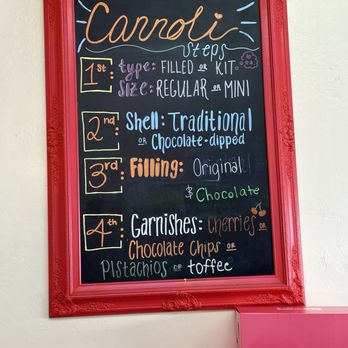 Cannoli
Steps
1st: type: FILLED or KIT
size: REGULAR or MINI
2nd: Shell: Traditional
or Chocolate-dipped
3rd: Filling: Original
& Chocolate
4th: Garnishes: Cherries or
Chocolate Chips or
Pistachios or toffee